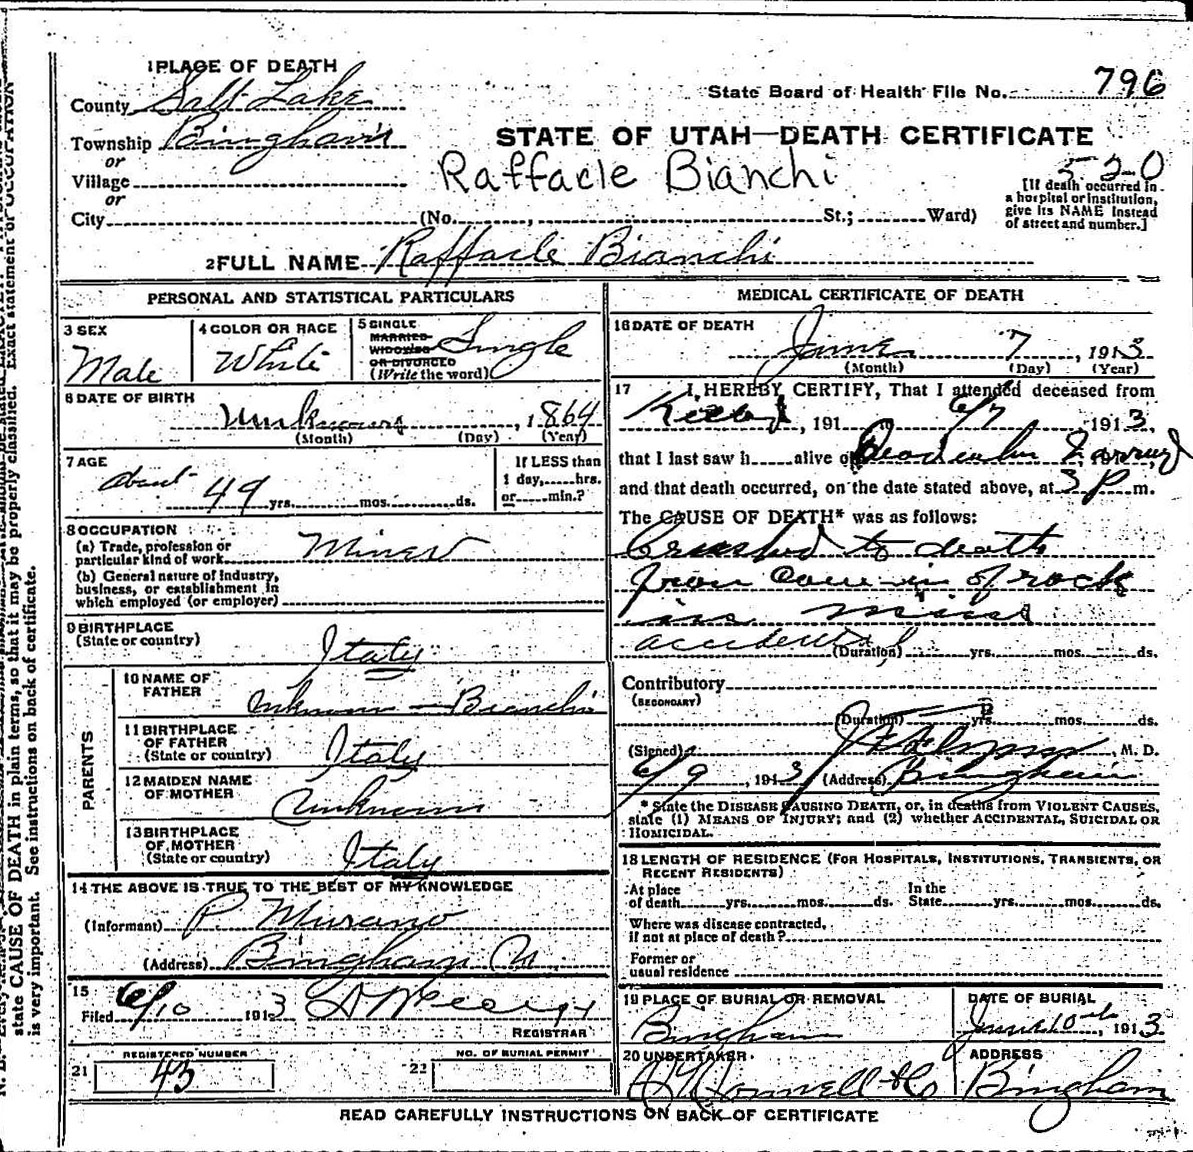 1 PLACE OF DEATH
County Salt Lake
State Board of Health File No. 796
Township Bingham
or
STATE OF UTAH—DEATH CERTIFICATE
Village
or
Raffaele Bianchi
520
[If death occurred in a hospital or institution, give its NAME instead of street and number.]
City (No. , St.; Ward)
2 FULL NAME Raffaele Bianchi
PERSONAL AND STATISTICAL PARTICULARS
3 SEX
Male
4 COLOR OR RACE
White
5 SINGLE
MARRIED
WIDOWED
OR DIVORCED
(Write the word)
Single
6 DATE OF BIRTH
Unknown, 1864
(Month) (Day) (Year)
7 AGE
about 49 yrs. mos. ds.
If LESS than
1 day, hrs.
or min.?
8 OCCUPATION
(a) Trade, profession or
particular kind of work Miner
(b) General nature of Industry,
business, or establishment in
which employed (or employer)
9 BIRTHPLACE
(State or country) Italy
PARENTS
10 NAME OF
FATHER Unknown — Bianchi
11 BIRTHPLACE
OF FATHER
(State or country) Italy
12 MAIDEN NAME
OF MOTHER Unknown
13 BIRTHPLACE
OF MOTHER
(State or country) Italy
14 THE ABOVE IS TRUE TO THE BEST OF MY KNOWLEDGE
(Informant) P. Murano
(Address) Bingham
15
Filed 6/10 1913
REGISTRAR
REGISTERED NUMBER
21 43
NO. OF BURIAL PERMIT
22
MEDICAL CERTIFICATE OF DEATH
16 DATE OF DEATH
June 7, 1913
(Month) (Day) (Year)
17 I HEREBY CERTIFY, That I attended deceased from
Killed, 191 6/7 1913,
that I last saw h alive on Dead when I arrived
and that death occurred, on the date stated above, at 3 P m.
The CAUSE OF DEATH* was as follows:
Crushed to death
from cave-in of rock
in mine
accidental
(Duration) yrs. mos. ds.
Contributory
(SECONDARY)
(Duration) yrs. mos. ds.
(Signed) M. D.
6/9, 1913 (Address) Bingham
* State the DISEASE CAUSING DEATH, or, in deaths from VIOLENT CAUSES,
state (1) MEANS OF INJURY; and (2) whether ACCIDENTAL, SUICIDAL OR
HOMICIDAL.
18 LENGTH OF RESIDENCE (FOR HOSPITALS, INSTITUTIONS, TRANSIENTS, OR
RECENT RESIDENTS)
At place In the
of death yrs. mos. ds. State yrs. mos. ds.
Where was disease contracted,
if not at place of death?
Former or
usual residence
19 PLACE OF BURIAL OR REMOVAL
Bingham
DATE OF BURIAL
June 10th, 1913
20 UNDERTAKER
& Co
ADDRESS
Bingham
READ CAREFULLY INSTRUCTIONS ON BACK OF CERTIFICATE
state CAUSE OF DEATH in plain terms, so that it may be properly classified. Exact statement of OCCUPATION
is very important. See instructions on back of certificate.